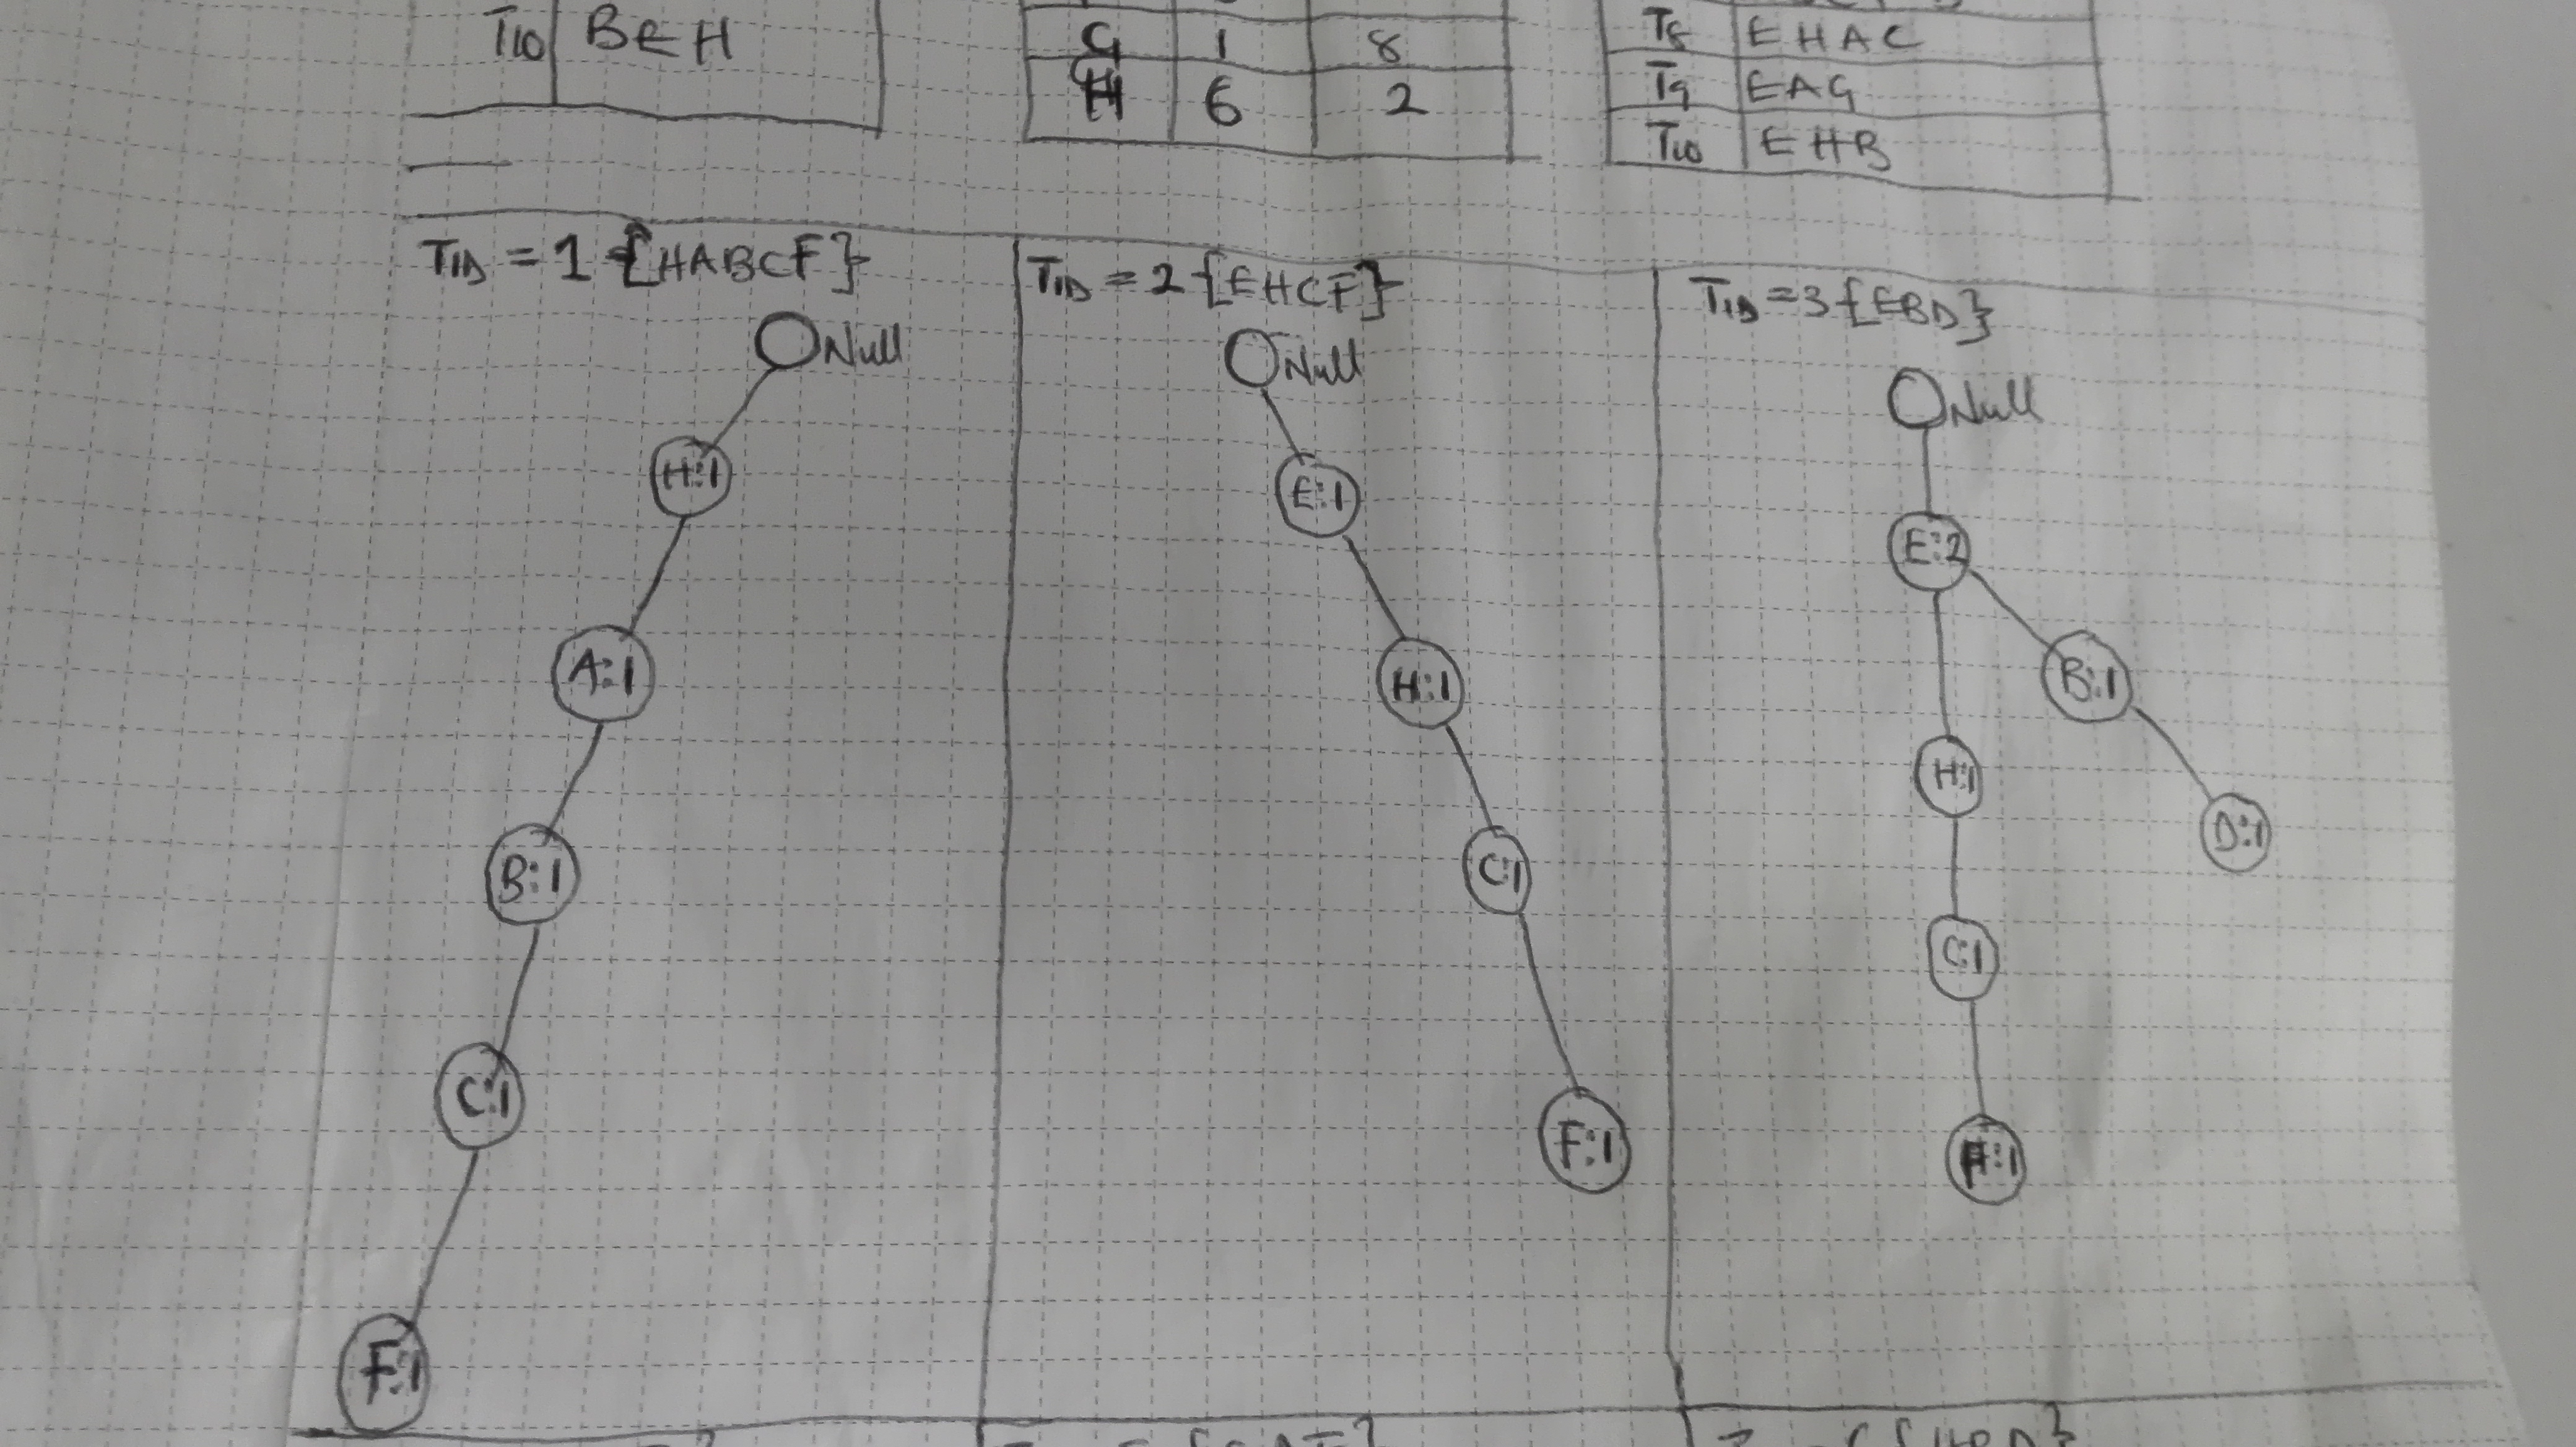 T10 BEH
G 1 8
H 6 2
T8 EHAC
T9 EAG
T10 EHB
TID = 1 {HABCF}
Null
H:1
A:1
B:1
C:1
F:1
TID = 2 {EHCF}
Null
E:1
H:1
C:1
F:1
TID = 3 {EBD}
Null
E:2
B:1
H:1
D:1
C:1
F:1